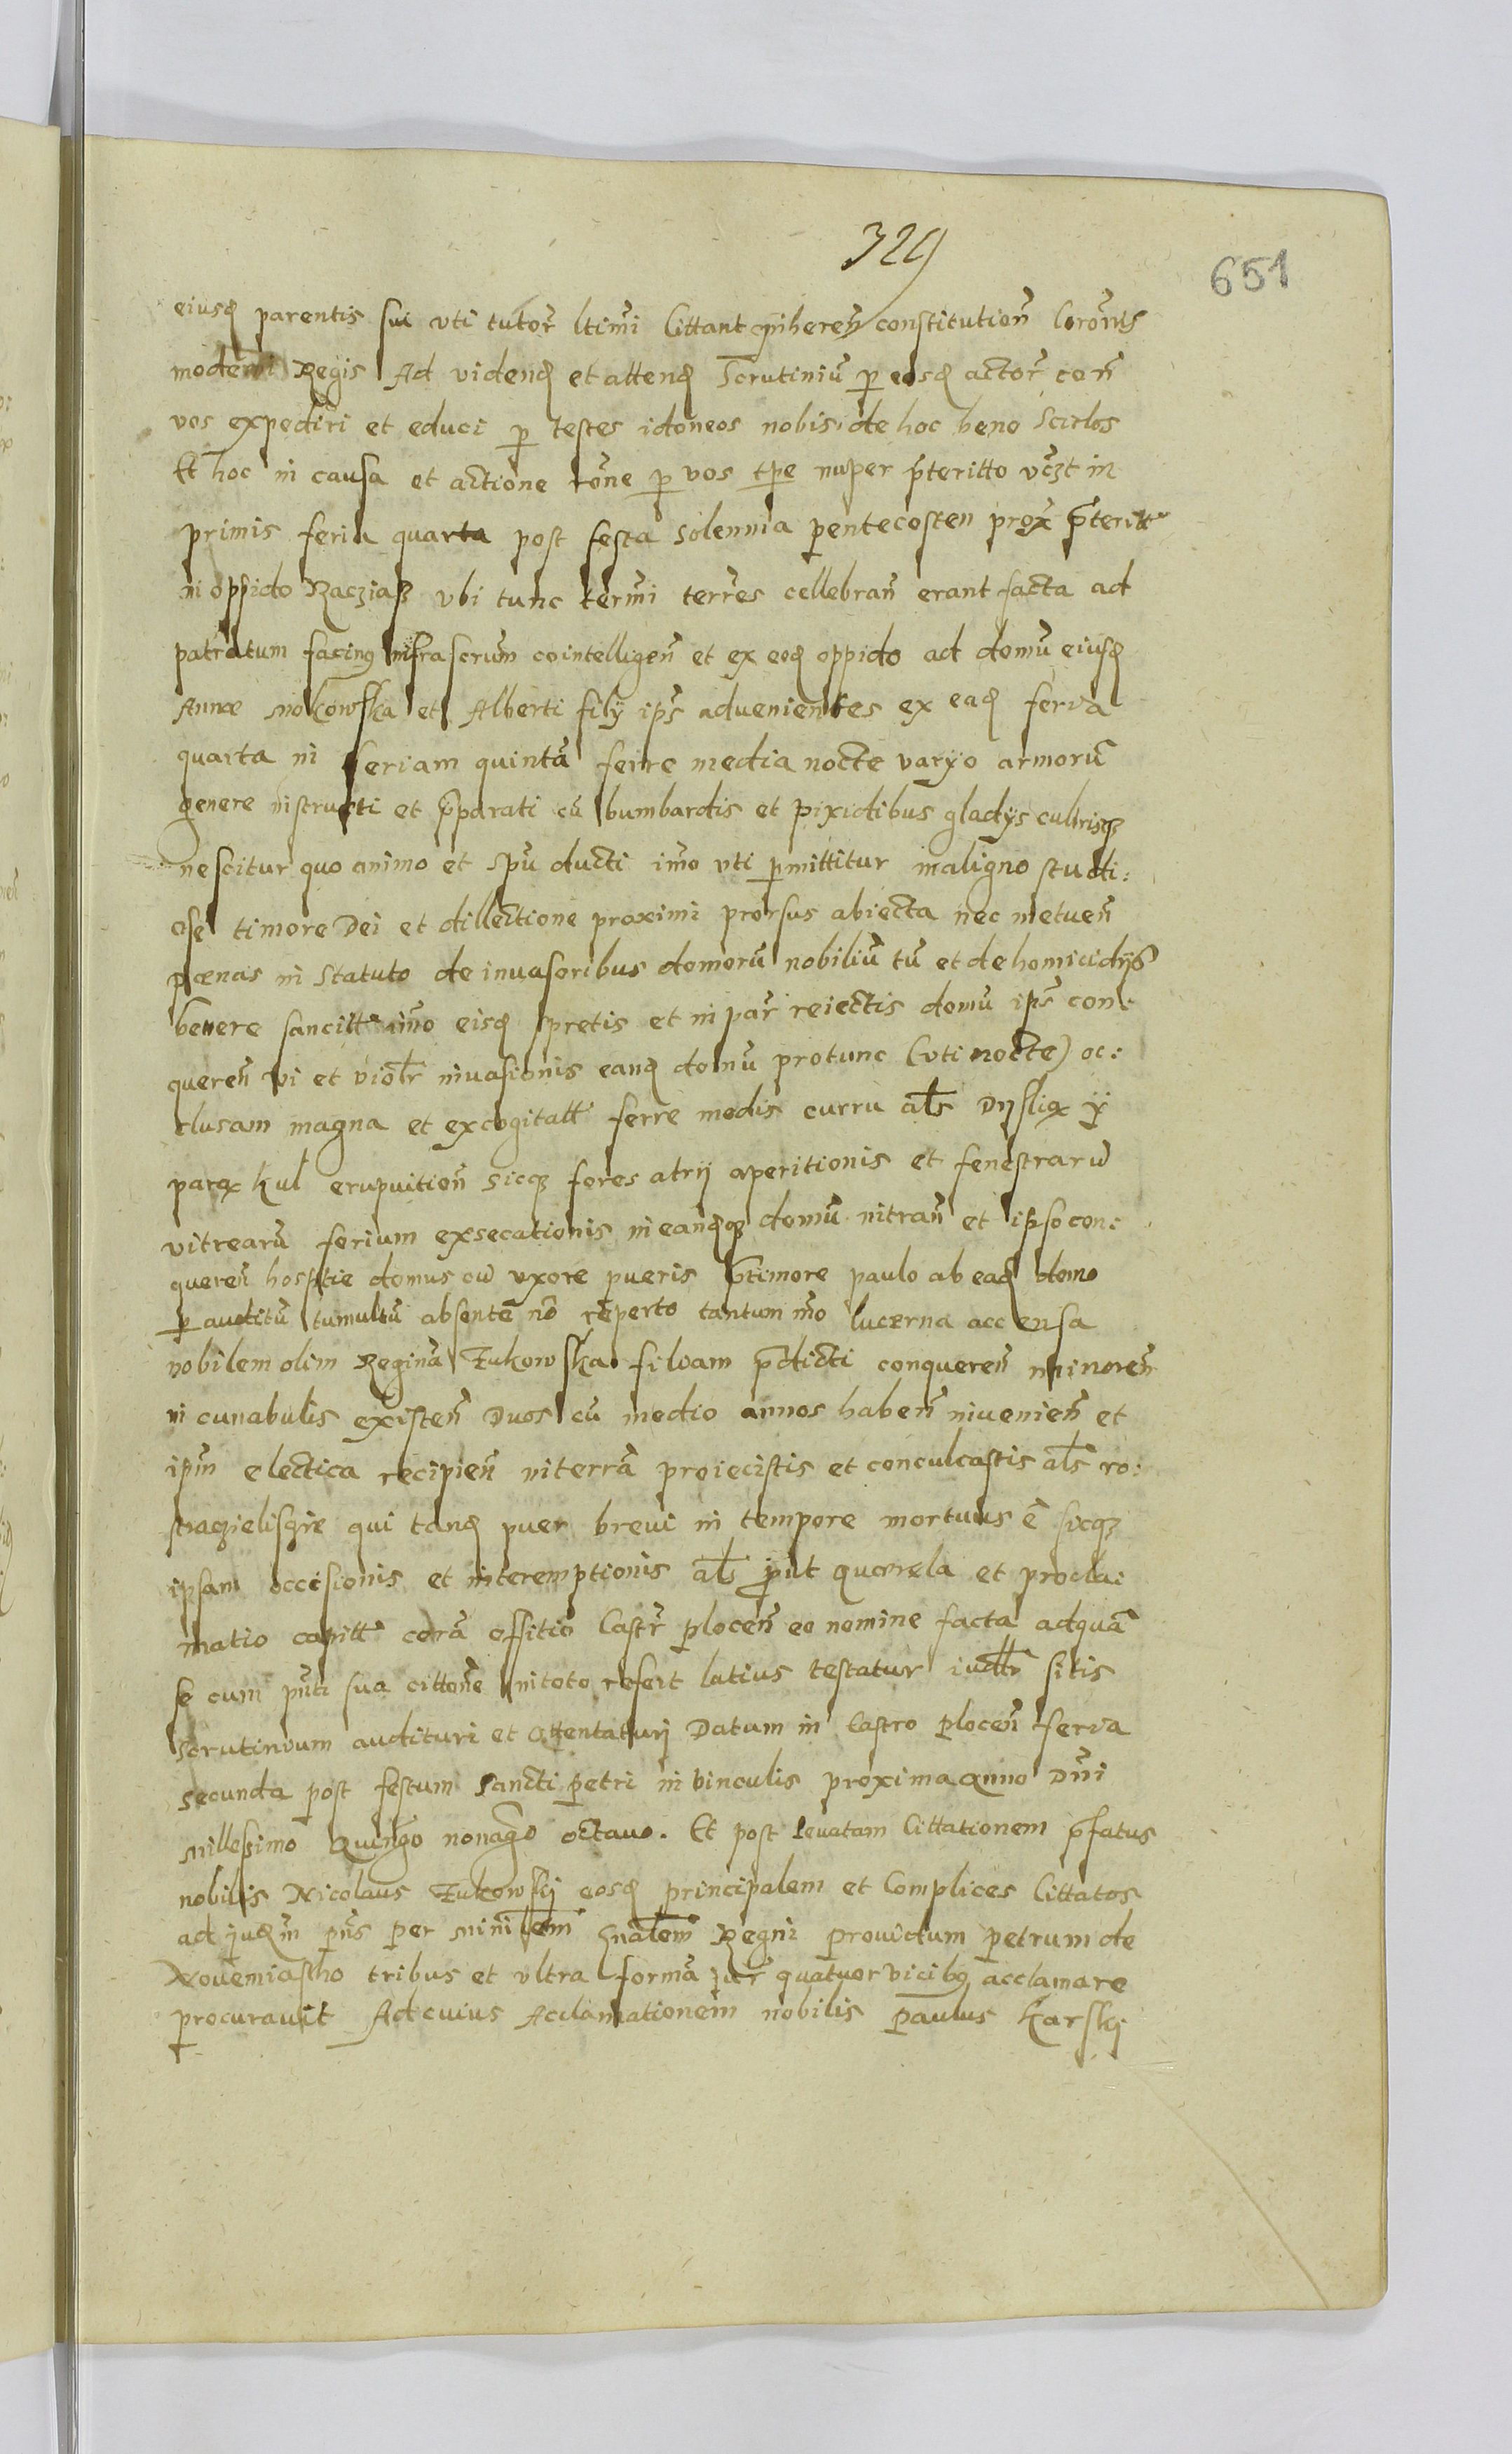 329
651
eiusd parentis sui vti tutor ltimi Cittant inheren constitution Coronis
moderni Regis Ad vidend et attend Scrutiniu p eosd actor con
vos expediri et educi p testes idoneos nobis de hoc bene Scitos
Et hoc in causa et actione rone p vos tpe nuper pteritto vczt in
primis feria quarta post festa Solennia pentecosten prox pteritt
in oppido Racziaz vbi tunc termi terres cellebran erant facta ad
patratum facing infrascrum cointelligen et ex eod oppido ad domu eiusd
Annæ mokowska et Alberti filij ips aduenientes ex ead feria
quarta in feriam quinta ferre media nocte varijo armoru
genere instructi et pparati cu bumbardis et pixidibus gladijs cultrisqz
nescitur quo animo et spu ducti imo vti pmittitur maligno studi:
ose timore Dei et dillectione proximi prorsus abiecta nec metuen
pœnas in Statuto de inuasoribus domoru nobiliu tu et de homicidijs
benere sancitt imo eisd spretis et in par reiectis domu ips con:
queren vi et violr inuasionis eand domu protunc (vti nocte) oc:
clusam magna et excogitatt ferre modis curru als Dysliax y
parax kul erupuition Sicqz fores atrij aperitionis et fenestraru
vitrearu ferium exsecationis in eandqz domu intran et ipso con:
queren hospitie domus cu vxore pueris ptimore paulo ab ead domo
p auditu tumultu absente no reperto tantum mo lucerna accensa
nobilem olim Regina Zukowska filiam pdicti conqueren minoren
in cunabulis existen Duos cu medio annos haben inuenien et
ipm electica recipien in terra proiecistis et conculcastis als ro:
straczielisczie qui tand puer breui in tempore mortuus e sicqz
ipsam occisionis et interemptionis als put quærela et procla:
matio capitt cora offitio Castr plocen eo nomine facta adqua
se cum pnti sua cittone in toto refert latius testatur iudtr sitis
Scrutinium audituri et Attentaturj Datum in Castro plocen feria
secunda post festum Sancti petri in vinculis proxima anno Dni
millesimo Quingo nonago octauo. Et post leuatam Cittationem pfatus
nobilis Nicolaus Zukowskj eosd principalem et Complices Cittatos
ad judm pns per minilem Gnalem Regni prouidum petrum de
Nouemiastho tribus et vltra forma jur quatuor vicibq acclamare
procurauit Ad cuius Acclamationem nobilis paulus Karskj